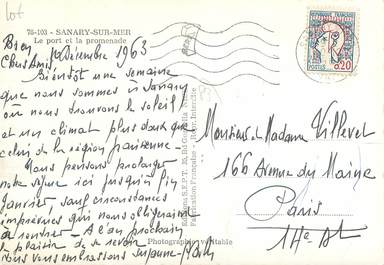 lot
78-103 - SANARY-SUR-MER
Le port et la promenade
Décembre 1963
Chers Amis,
Bientôt une semaine
que nous sommes à Sanary
où nous trouvons le soleil
et un climat plus doux que
celui de la région parisienne -
Nous pensons prolonger
notre séjour ici jusqu'à fin
Janvier, sauf circonstances
imprévues qui nous obligeraient
à rentrer - A l'an prochain
le plaisir de se revoir
Nous vous embrassons Suzanne
Editions S.E.P.T.
Fabrication Française - Interdite
Photographie véritable
POSTES 0,20
Monsieur et Madame Villevet
166 Avenue du Maine
Paris
14e At